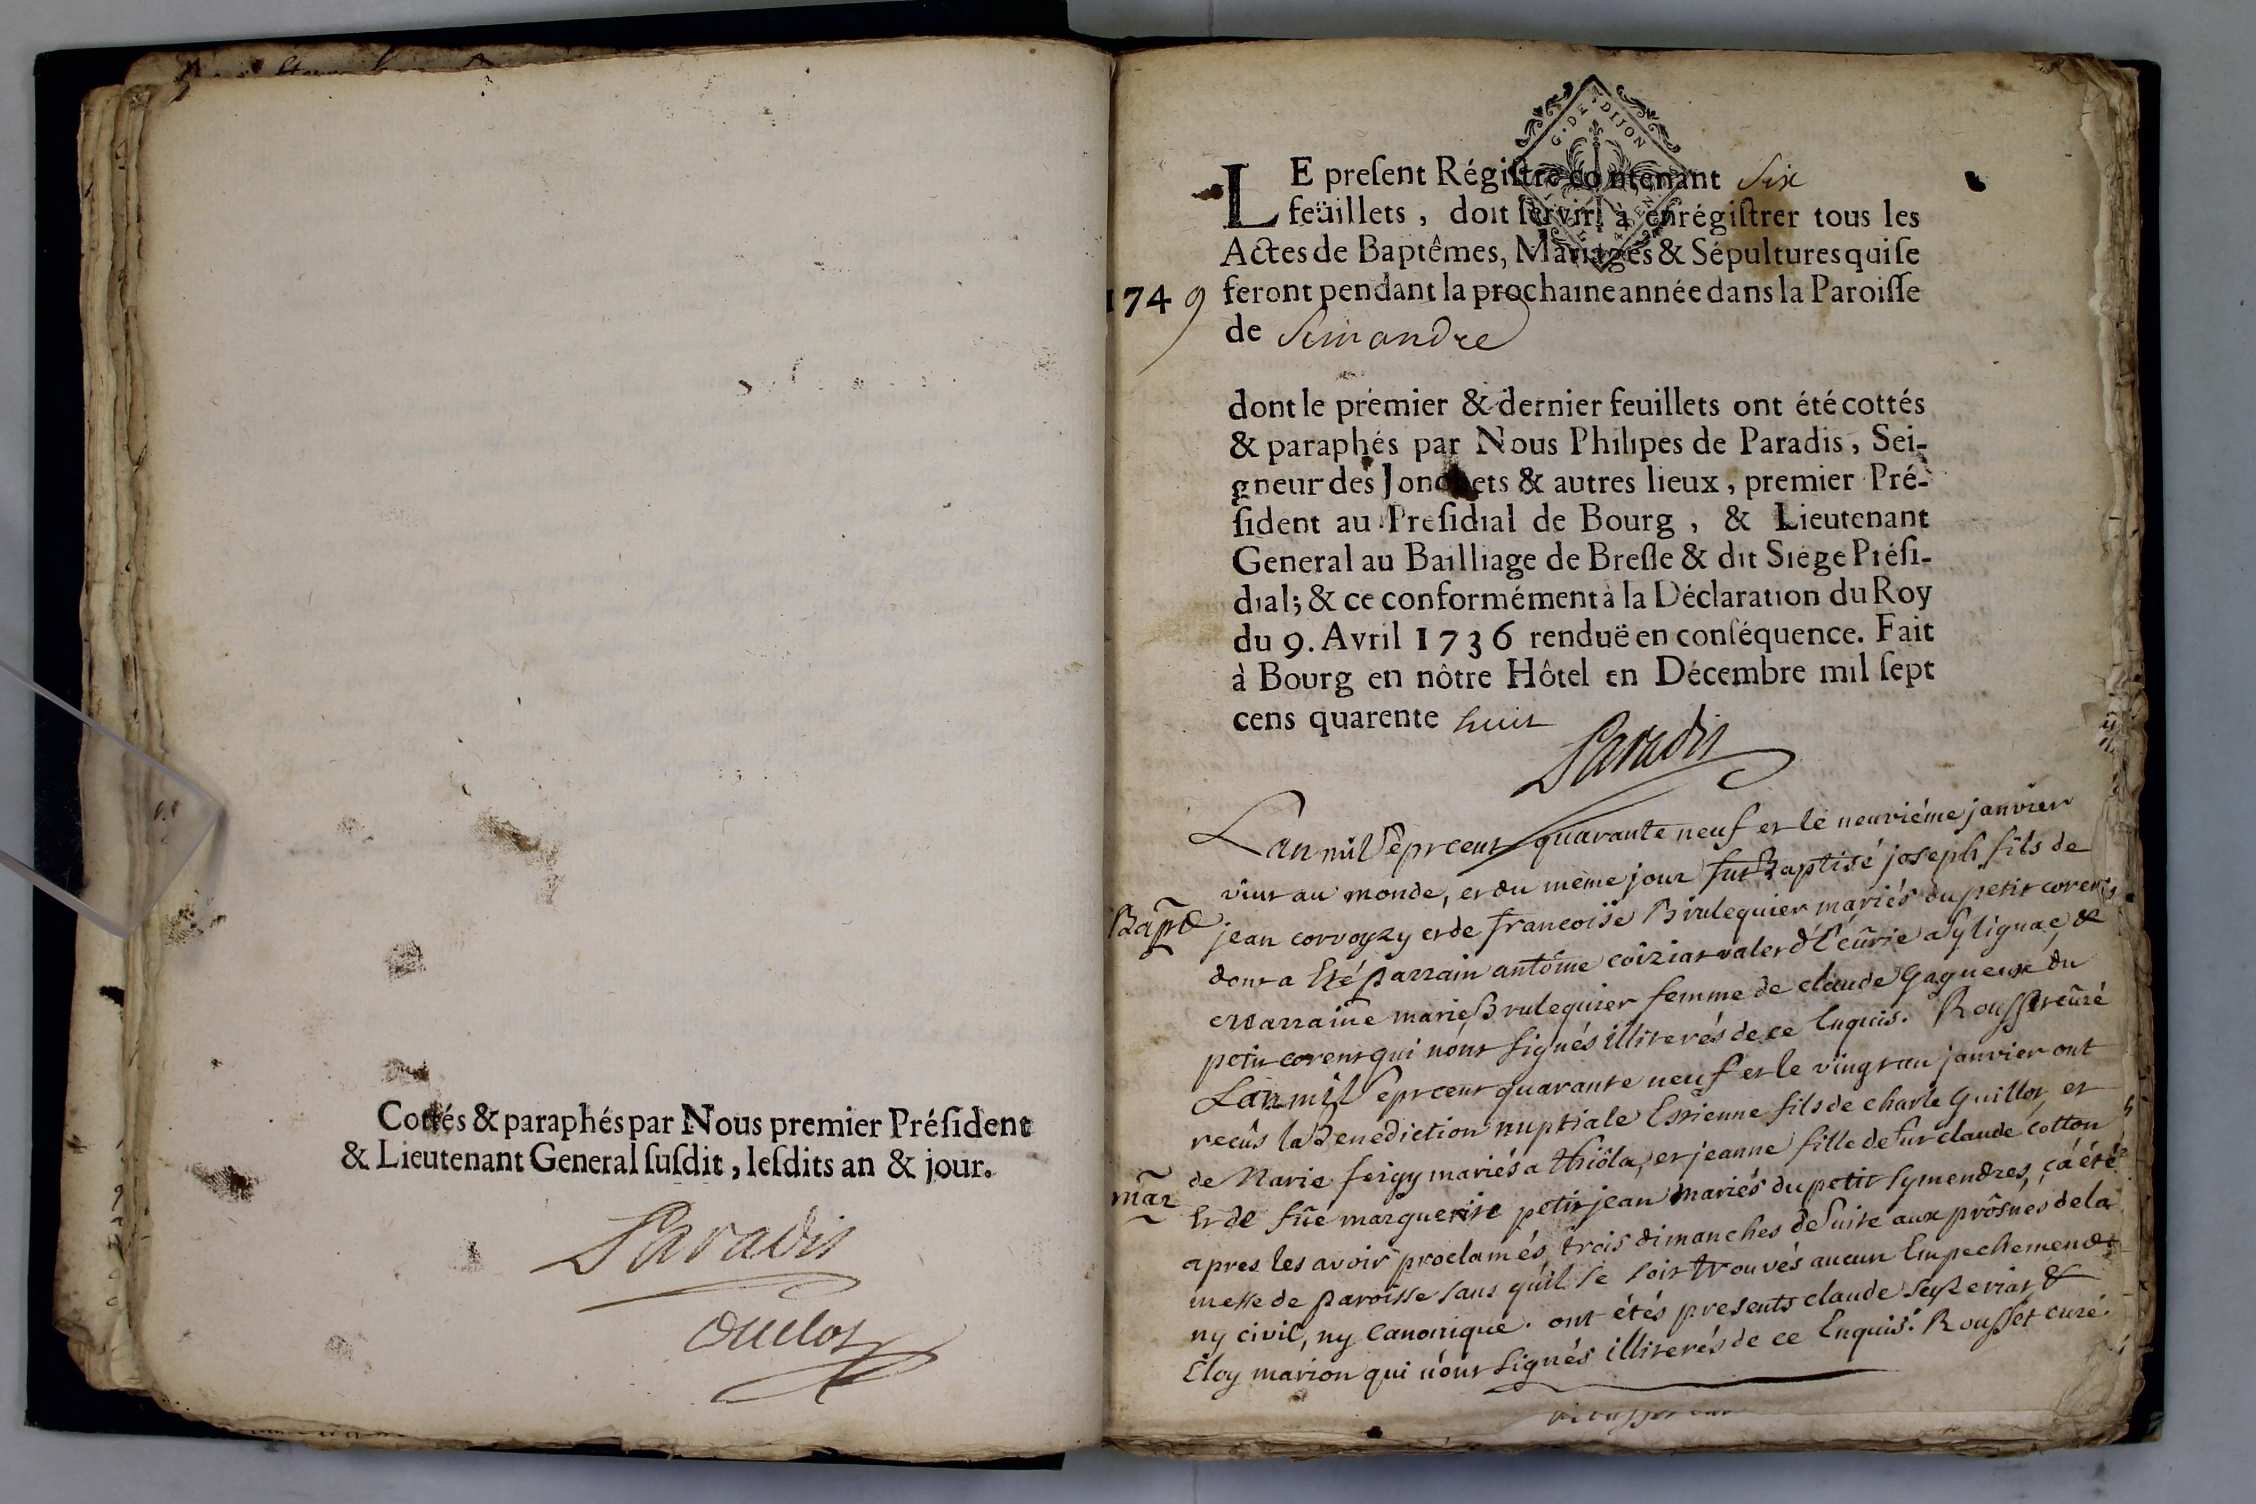 Cottés & paraphés par Nous premier Préſident
& Lieutenant General ſuſdit, leſdits an & jour.
Paradis
Duclos
G. DE DIJON
LE preſent Régiſtre contenant Six
feüillets, doit ſervir à enrégiſtrer tous les
Actes de Baptêmes, Mariages & Sépultures qui ſe
1749 feront pendant la prochaine année dans la Paroiſſe
de Simandre
dont le prémier & dernier feuillets ont été cottés
& paraphés par Nous Philipes de Paradis, Sei-
gneur des Jonchets & autres lieux, premier Pré-
ſident au Preſidial de Bourg, & Lieutenant
General au Bailliage de Breſſe & dit Siége Préſi-
dial; & ce conformément à la Déclaration du Roy
du 9. Avril 1736 renduë en conſéquence. Fait
à Bourg en nôtre Hôtel en Décembre mil ſept
cens quarente huit
Paradis
L'an mil sept cent quarante neuf et le neuviéme janvier
vint au monde, et du même jour fut Baptisé joseph fils de
Bapt jean corvoyzy et de francoise Brulequier mariés du petit corent
dont a Eté parrain antoine coiziat valet d'Ecurie a Sylignac, &
marraine marie Brulequier femme de claude Gagneux du
petit corent qui n'ont signés illiterés de ce Enquis. Rousset curé
L'an mil sept cent quarante neuf et le vingt au janvier ont
recûs la Benediction nuptiale Estienne fils de charle Guillot, et
de Marie feigy mariés a thiola, et jeanne fille de fut claude cotton
mar Et de füe marguerite petitjean mariés du petit symendres, ça été
apres les avoir proclamés trois dimanches de suite aux prôsnes de la
messe de paroisse sans qu'il se soit trouvés aucun Empechement
ny civil, ny Canonique. ont étés presents claude seyzeriat &
Eloy marion qui n'ont signés illiterés de ce Enquis. Rousset curé.